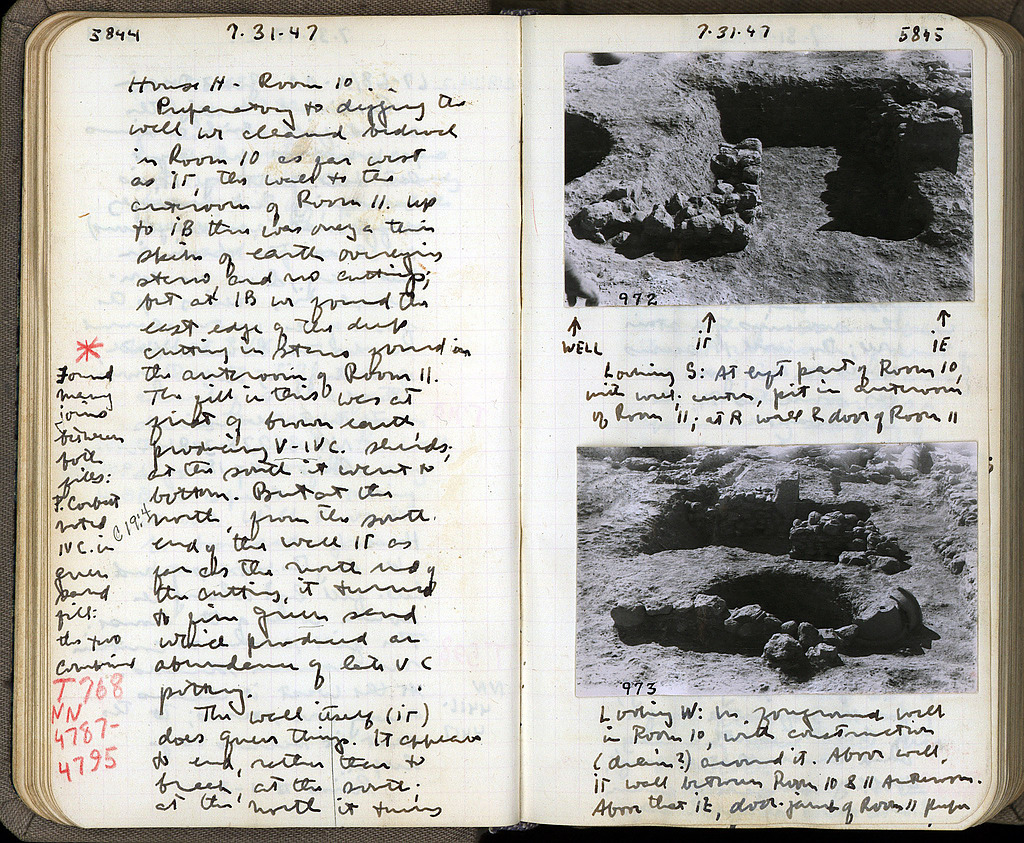 3844
7.31.47
House H - Room 10.
Preparatory to digging the
well we cleaned bedrock
in Room 10 as far west
as IΓ, the wall to the
anteroom of Room 11. Up
to IB there was only a thin
skin of earth overlying
stereo, and no cuttings;
but at IB we found the
east edge of the deep
cutting in stereo found in
the anteroom of Room 11.
The fill in this was at
first of brown earth
producing V-IV C. sherds;
at the south it went to
bottom. But at the
north, from the south
end of the wall IΓ as
far as the north end of
the cutting, it turned
to fine green sand
which produced an
abundance of late V C
pottery.
The wall itself (IΓ)
does queer things. It appears
to end, rather than to
break, at the south.
at the north it turns
*
Found
many
joins
between
both
files:
P. Corbett
noted
IV C. in
green
sand
fill:
the two
combined
C 19:4
T 768
NN
4787-
4795
7.31.47
5845
972
↑ ↑ ↑
WELL IΓ IE
Looking S: At left part of Room 10,
with well. center, pit in anteroom
of Room 11; at R wall & door of Room 11
973
Looking W: In foreground well
in Room 10, with construction
(drain?) around it. Above well,
IΓ wall between Room 10 & 11 Anteroom.
Above that IE, door-jamb of Room 11 proper